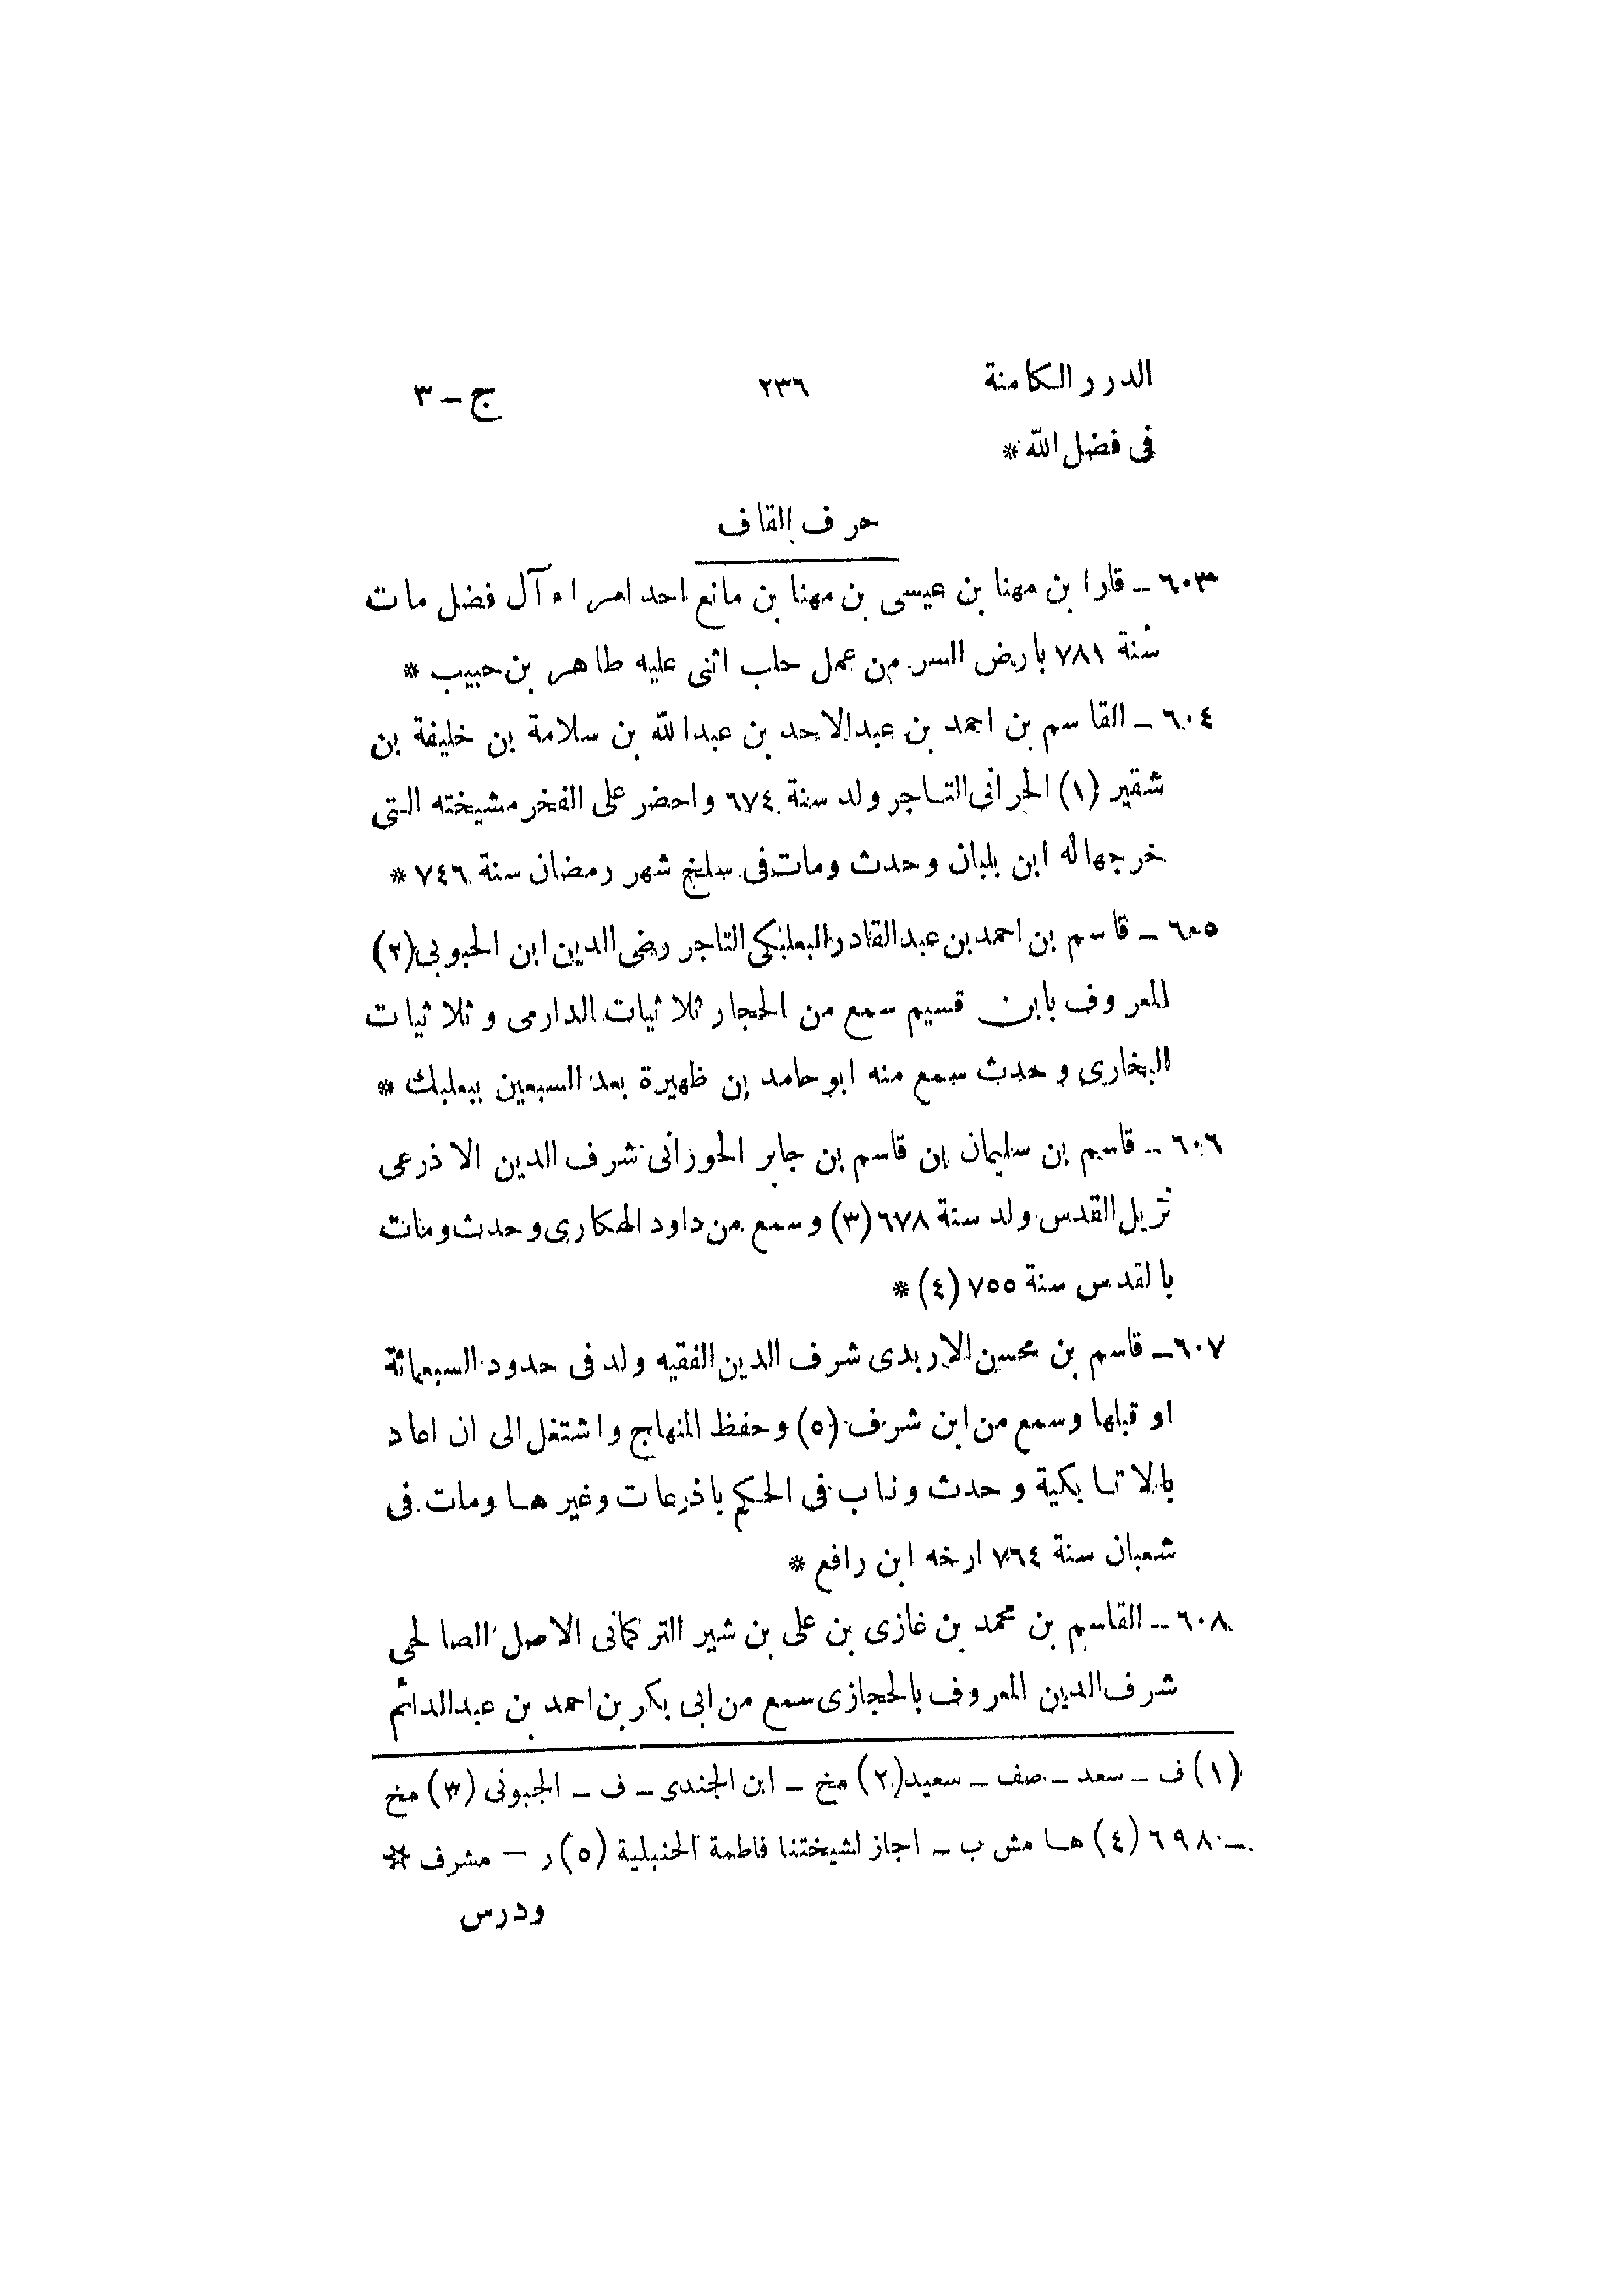 الدرر الكامنة ٢٣٦ ج - ٣
فى فضل الله *
حرف القاف
٦٠٣ - قارا بن مهنا بن عيسى بن مهنا بن مانع احد امراء آل فضل مات
سنة ٧٨١ بارض السر من عمل حلب اثنى عليه طاهر بن حبيب *
٦٠٤ - القاسم بن احمد بن عبد الاحد بن عبد الله بن سلامة بن خليفة بن
شقير (١) الحرانى التاجر ولد سنة ٦٧٤ واحضر على الفخر مشيخته التى
خرجها له ابن بلبان وحدث ومات فى سلخ شهر رمضان سنة ٧٤٦ *
٦٠٥ - قاسم بن احمد بن عبد القادر البعلبكى التاجر رضى الدين ابن الحبوبى (٢)
المعروف بابن قسيم سمع من الحجار ثلاثيات الدارمى وثلاثيات
البخارى وحدث سمع منه ابو حامد بن ظهيرة بعد السبعين ببعلبك *
٦٠٦ - قاسم بن سليمان بن قاسم بن جابر الحوزانى شرف الدين الاذرعى
نزيل القدس ولد سنة ٦٧٨ (٣) وسمع من داود الهكارى وحدث ومات
بالقدس سنة ٧٥٥ (٤) *
٦٠٧ - قاسم بن محسن الاربدى شرف الدين الفقيه ولد فى حدود السبعمائة
او قبلها وسمع من ابن شرف (٥) وحفظ المنهاج واشتغل الى ان اعاد
بالاتابكية وحدث وناب فى الحكم باذرعات وغيرها ومات فى
شعبان سنة ٧٦٤ ارخه ابن رافع *
٦٠٨ - القاسم بن محمد بن غازى بن على بن شير التركمانى الاصل الصالحى
شرف الدين المعروف بالحجازى سمع من ابى بكر بن احمد بن عبد الدائم
(١) ف - سعد - صف - سعيد (٢) مخ - ابن الجندى - ف - الجبونى (٣) مخ
- ٦٩٨ (٤) هامش ب - اجاز لشيختنا فاطمة الحنبلية (٥) ر - مشرف *
ودرس